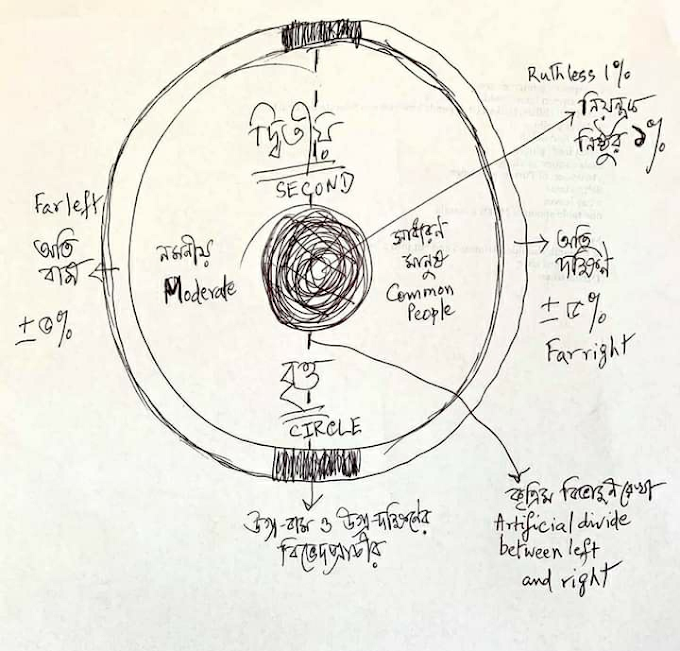 Ruthless 1%
নিয়ন্ত্রক
নিষ্ঠুর ১%
দ্বিতীয়
SECOND
Far left
অতি
বাম
±৫%
নমনীয়
Moderate
সাধারণ
মানুষ
Common
People
অতি
দক্ষিণ
±৫%
Far right
বৃত্ত
CIRCLE
উগ্র-বাম ও উগ্র-দক্ষিণের
বিভেদপ্রাচীর
কৃত্রিম বিভাজন রেখা
Artificial divide
between left
and right